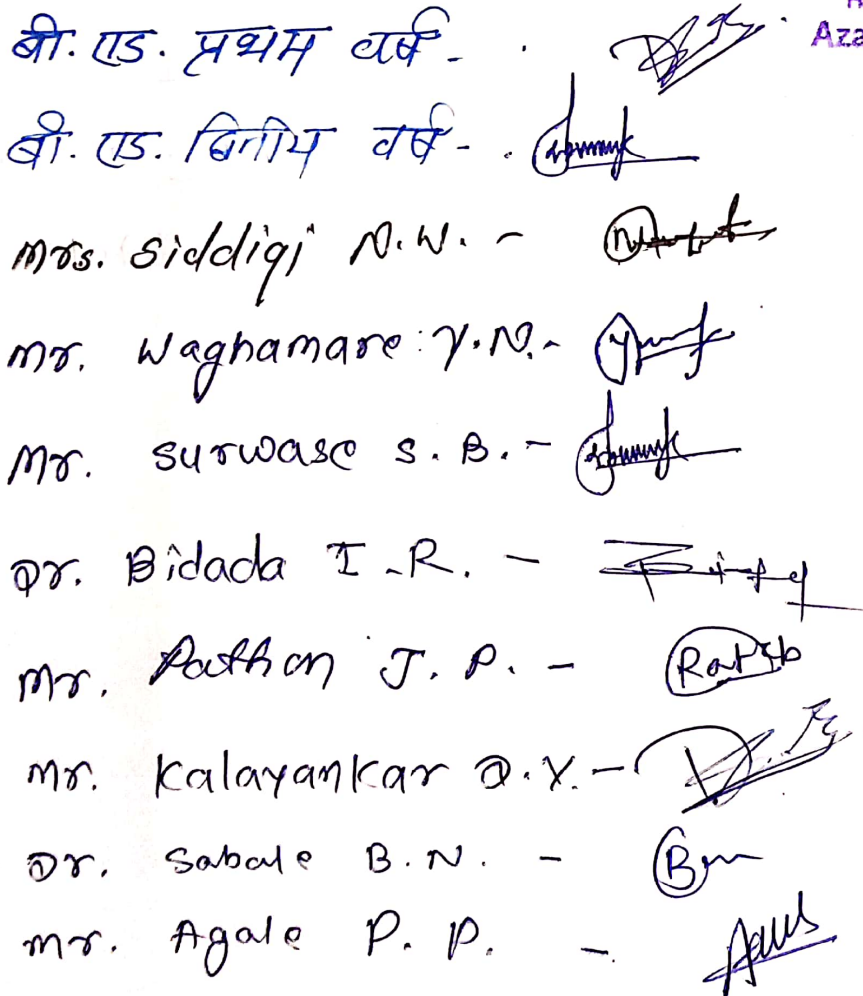 Aza
बी. एड. प्रथम वर्ष -
बी. एड. द्वितीय वर्ष -
Mrs. Siddiqi N.W. -
Mr. Waghamare Y.N. -
Mr. Surwase S. B. -
Dr. Bidada I.R. -
Mr. Pathan J. P. -
Mr. Kalayankar D.Y. -
Dr. Sabale B.N. -
Mr. Agale P. P. -